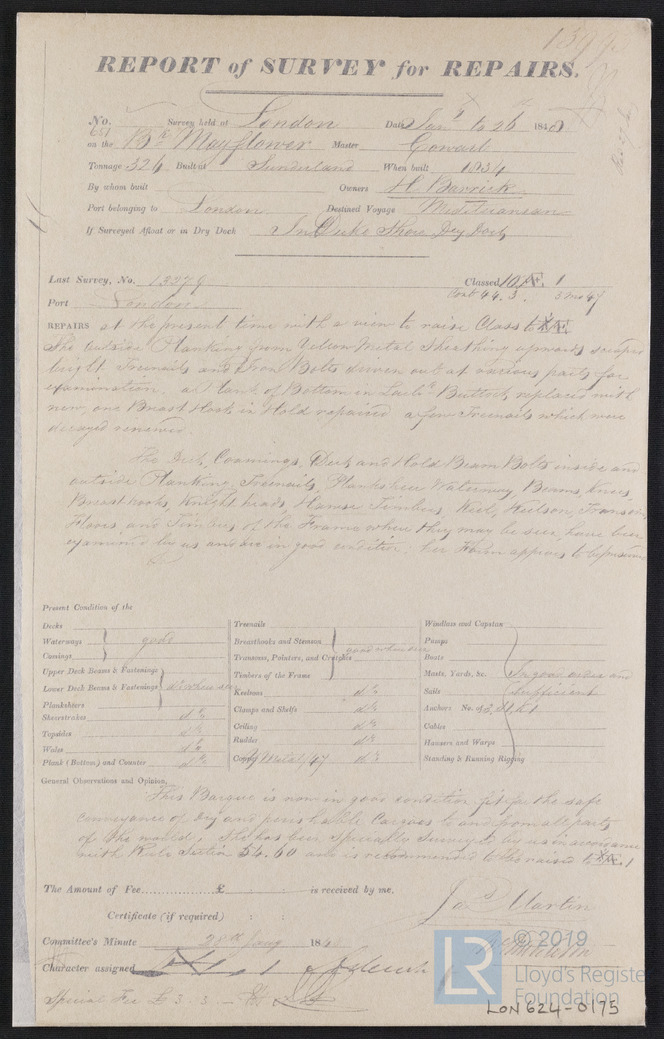 REPORT of SURVEY for REPAIRS.
No. 651 Survey held at London Date Jany to 26 1848
on the Bk Mayflower Master Cowart
Tonnage 326 Built at Sunderland When built 1834
By whom built Owners H. Barrick
Port belonging to London Destined Voyage Mediterranean
If Surveyed Afloat or in Dry Dock In Duke Shore Dry Dock
Last Survey, No. 13379 Classed 1
Port London Cont 44. 3.
REPAIRS at the present time with a view to raise Class to
The outside Planking from Yellow Metal Sheathing upwards scraped
bright Treenails and Iron Bolts driven out at various parts for
examination. a Plank of Bottom in Buttock replaced with
new, one Breast Hook in Hold repaired a few Treenails which were
decayed renewed.
The Deck, Coamings, Deck and Hold Beam Bolts inside and
outside Planking, Treenails, Planksheer Waterway, Beams, Knees,
Breasthooks, Knightheads, Hawse Timbers, Keel, Keelson, Transoms
Floors and Timbers of the Frame where they may be seen, have been
examined by us and are in good condition: her Form appears to be preserved
Present Condition of the
Decks
Waterways good
Comings
Upper Deck Beams & Fastenings
Lower Deck Beams & Fastenings do where seen
Planksheers
Sheerstrakes do
Topsides do
Wales do
Plank (Bottom) and Counter do
Treenails
Breasthooks and Stemson good where seen
Transoms, Pointers, and Crutches
Timbers of the Frame
Keelsons do
Clamps and Shelfs do
Ceiling do
Rudder do
Copper Y Metal /47 do
Windlass and Capstan
Pumps
Boats
Masts, Yards, &c. In good order and
Sails Sufficient
Anchors No.
Cables
Hawsers and Warps
Standing & Running Rigging
General Observations and Opinion,
This Barque is now in good condition fit for the safe
conveyance of dry and perishable Cargoes to and from all parts
of the world. She has been specially surveyed by us in accordance
with Rule Section 56. 60 and is recommended to be raised to 1
The Amount of Fee £ is received by me.
Jas Martin
Certificate (if required)
Committee's Minute 28th Jany 184
Character assigned
Special Fee £ 3. 3. –
© 2019
Lloyd's Register
Foundation
LR
LON 624-0175